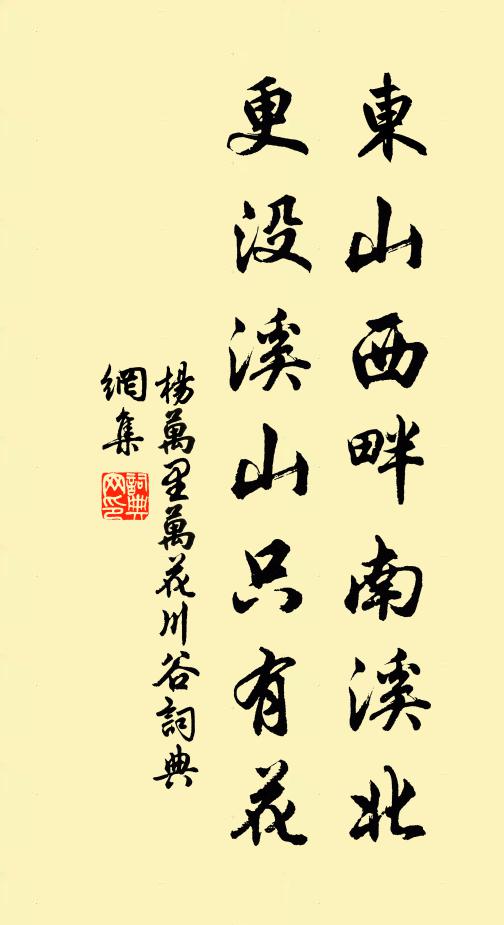 東山西畔南溪北
更没溪山只有花
楊萬里萬花川谷詞典
網集
詞典
网印